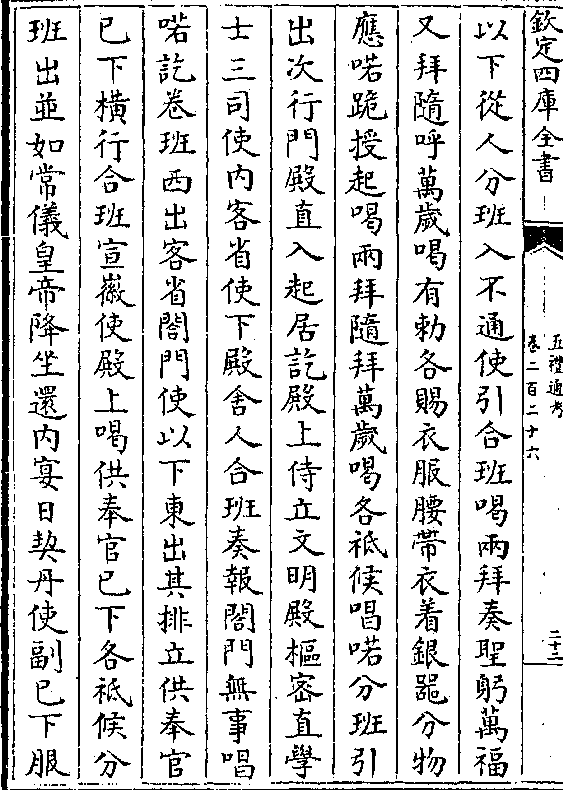 欽定四庫全書
五禮通考
卷二百二十六
二十二
以下從人分班入不通使引合班喝兩拜奏聖躬萬福
又拜隨呼萬歲喝有勅各賜衣服腰帶衣着銀器分物
應喏跪授起喝兩拜隨拜萬歲喝各祗候唱喏分班引
出次行門殿直入起居訖殿上侍立文明殿樞密直學
士三司使内客省使下殿舍人合班奏報閤門無事唱
喏訖卷班西出客省閤門使以下東出其排立供奉官
已下横行合班宣徽使殿上喝供奉官已下各祗候分
班出並如常儀皇帝降坐還内宴日契丹使副已下服